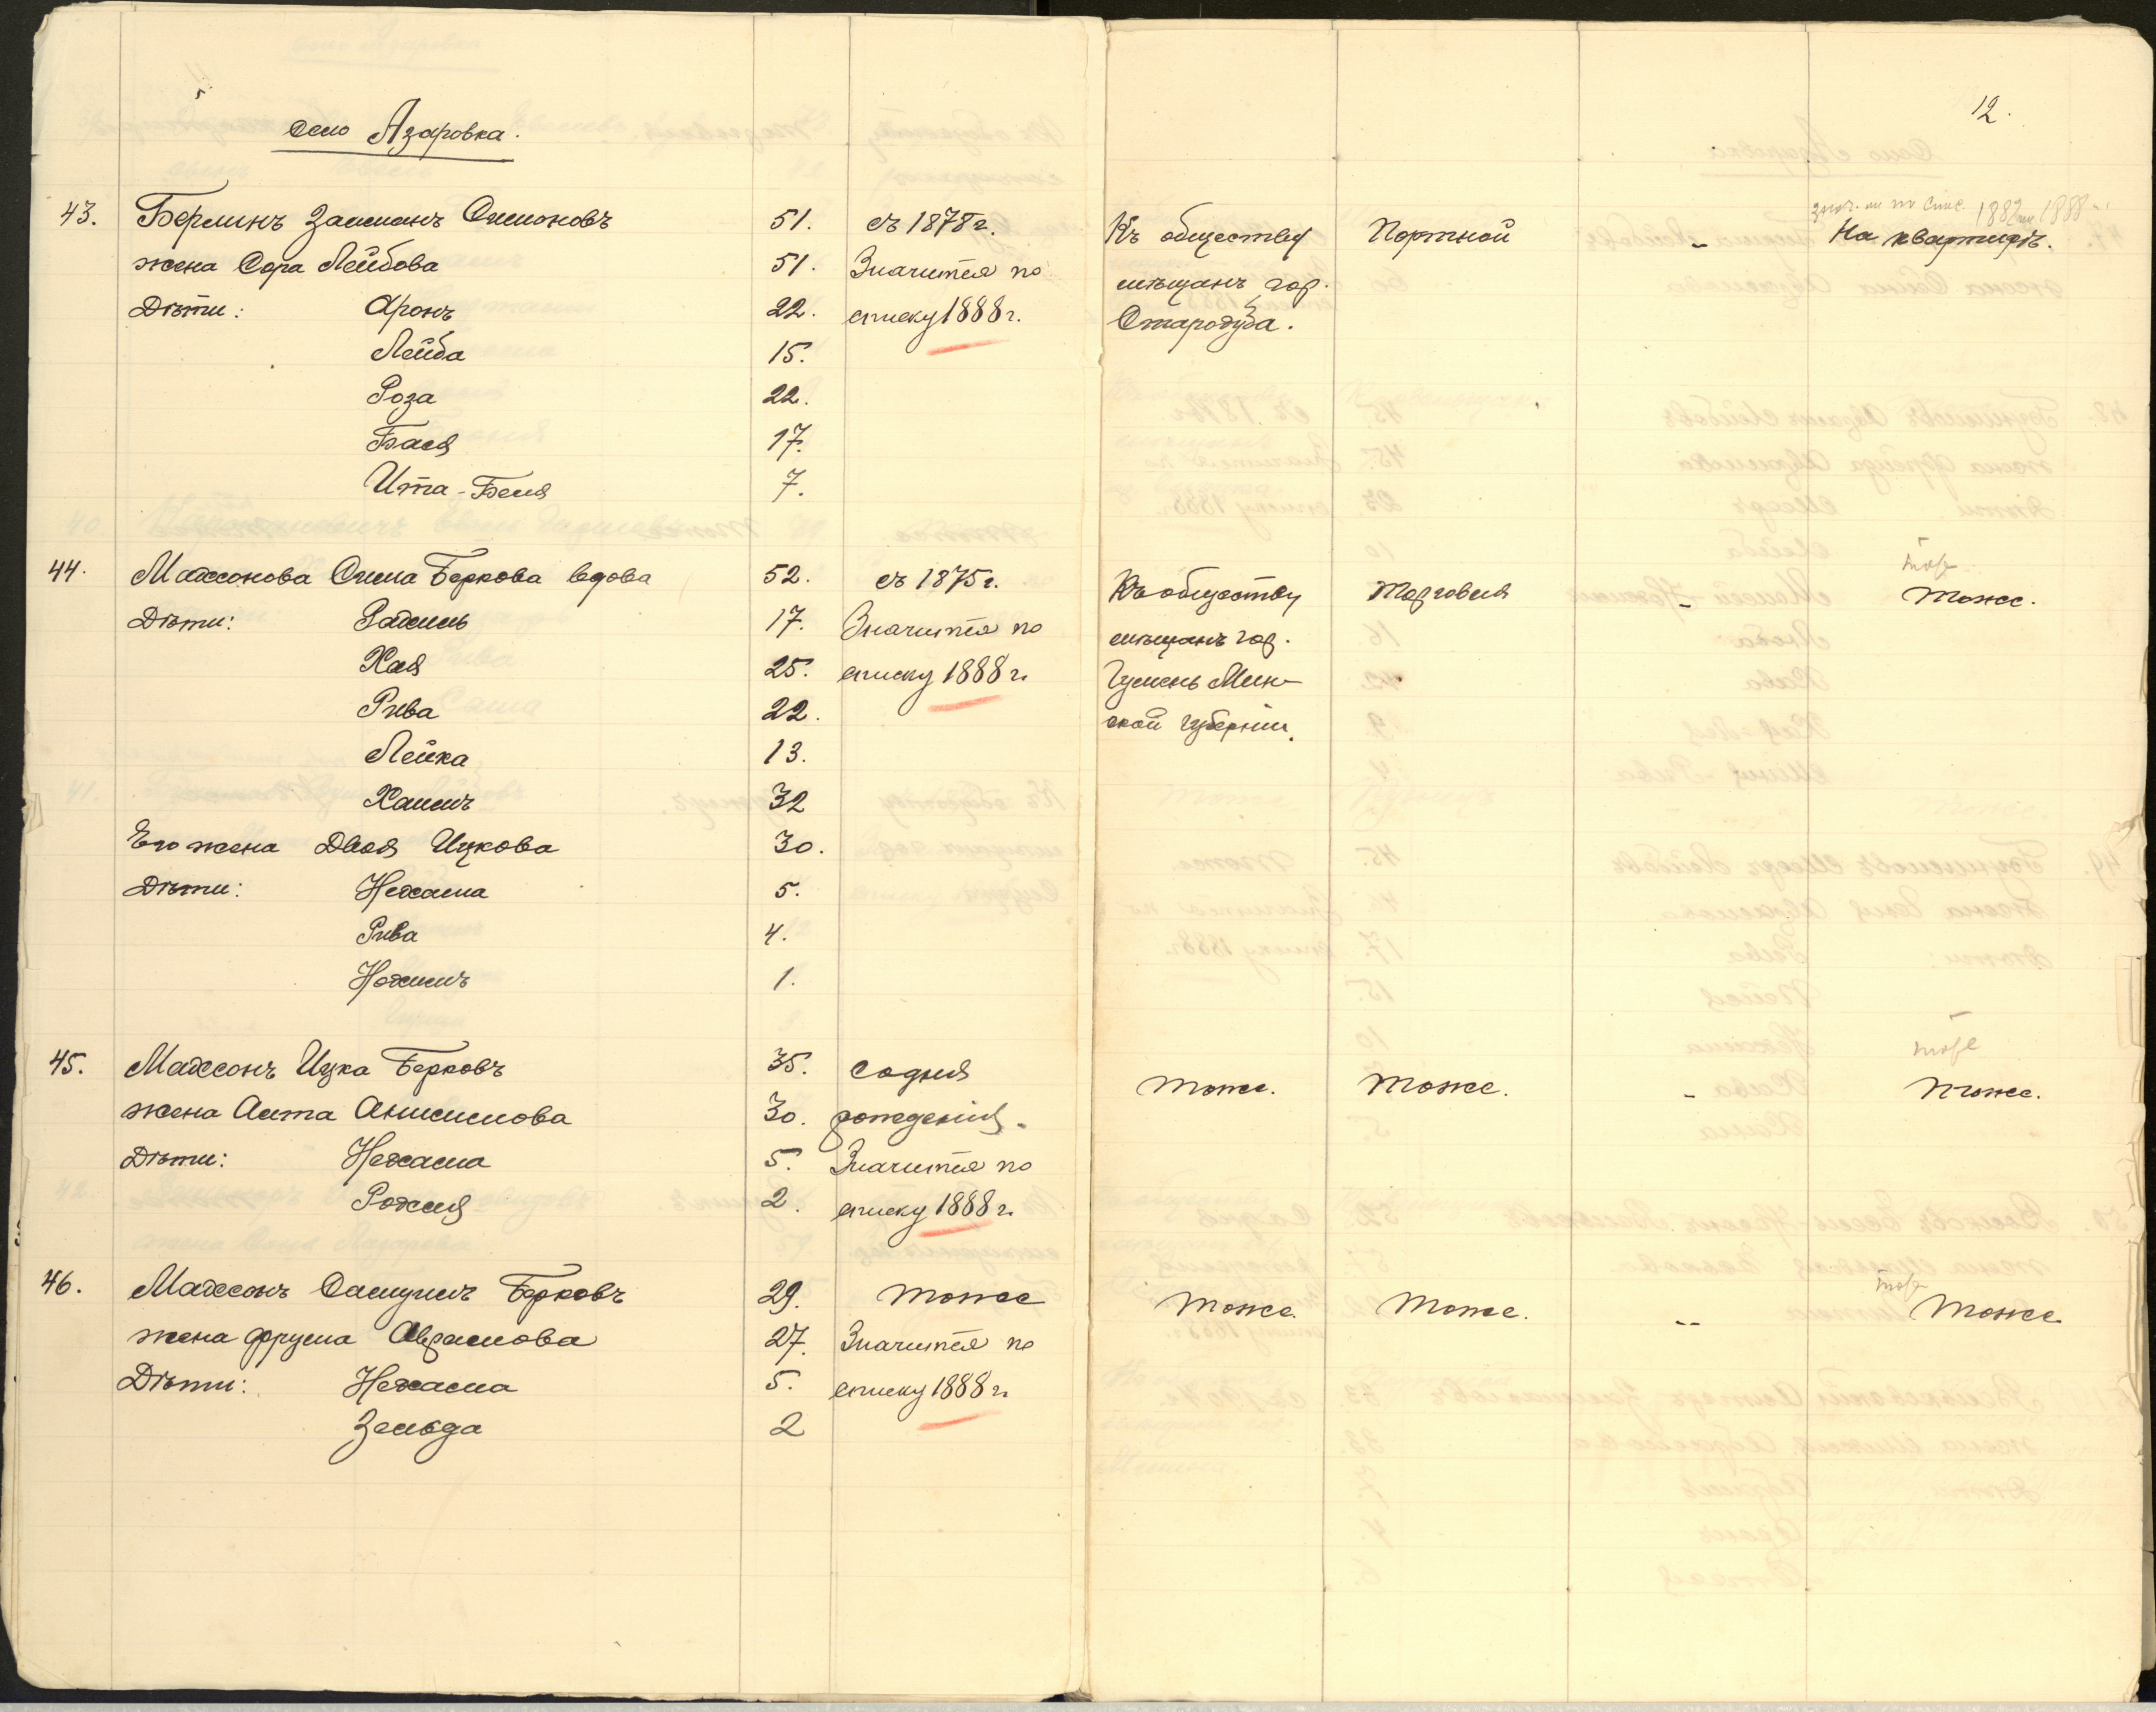 12.
Село Азаровка.
43. Берлинъ Залманъ Симоновъ 51. съ 1878 г. Къ обществу Портной - На квартирѣ.
знач. по спис. 1882 и 1888
жена Сора Лейбова 51. Значится по мѣщанъ гор.
Дѣти: Аронъ 22. списку 1888 г. Стародуба.
Лейба 15.
Роза 22.
Бася 17.
Ита-Беля 7.
44. Махсонова Сима Беркова вдова 52. съ 1875 г. Къ обществу Торговля - Тоже.
тоже
Дѣти: Рахиль 17. Значится по мѣщанъ гор.
Хая 25. списку 1888 г. Игумень Мин-
Рива 22. ской губерніи.
Лейка 13.
Хаимъ 32
Его жена Двося Ицкова 30.
Дѣти: Нехама 5.
Рива 4.
Нохимъ 1.
45. Махсонъ Ицка Берковъ 35. со дня Тоже. Тоже. - Тоже.
тоже
жена Анисимова 30. рожденія.
Дѣти: Нехама 5. Значится по
2. списку 1888 г.
46. Махсонъ Самуилъ Берковъ 29. Тоже Тоже. Тоже. -- Тоже
тоже
жена Фрума Абрамова 27. Значится по
Дѣти: Нехама 5. списку 1888 г.
Зельда 2